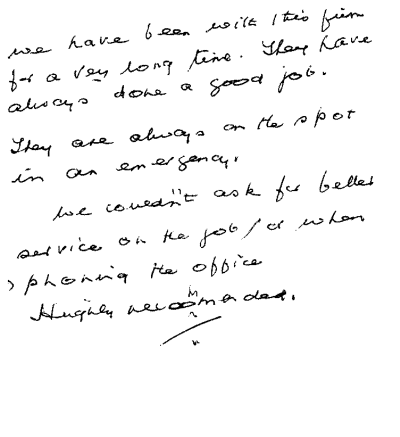 we have been with this firm
for a very long time. They have
always done a good job.
They are always on the spot
in an emergency.
we couldn't ask for better
service on the job / or when
phoning the office
Highly recommended.